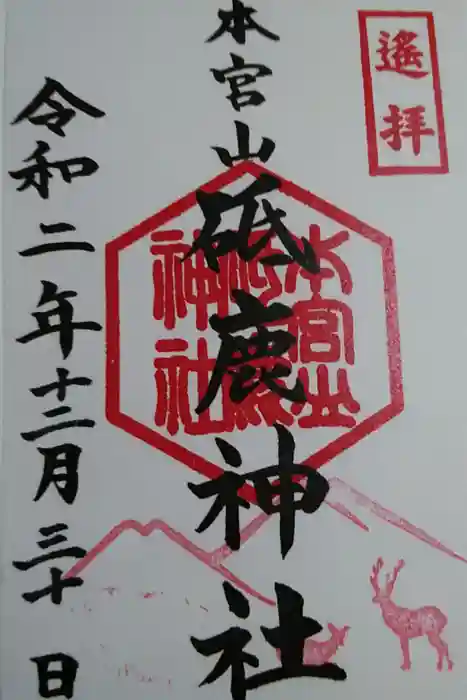 遙拝
本宮山
砥鹿神社
本宮山
砥鹿
神社
令和二年十二月三十日